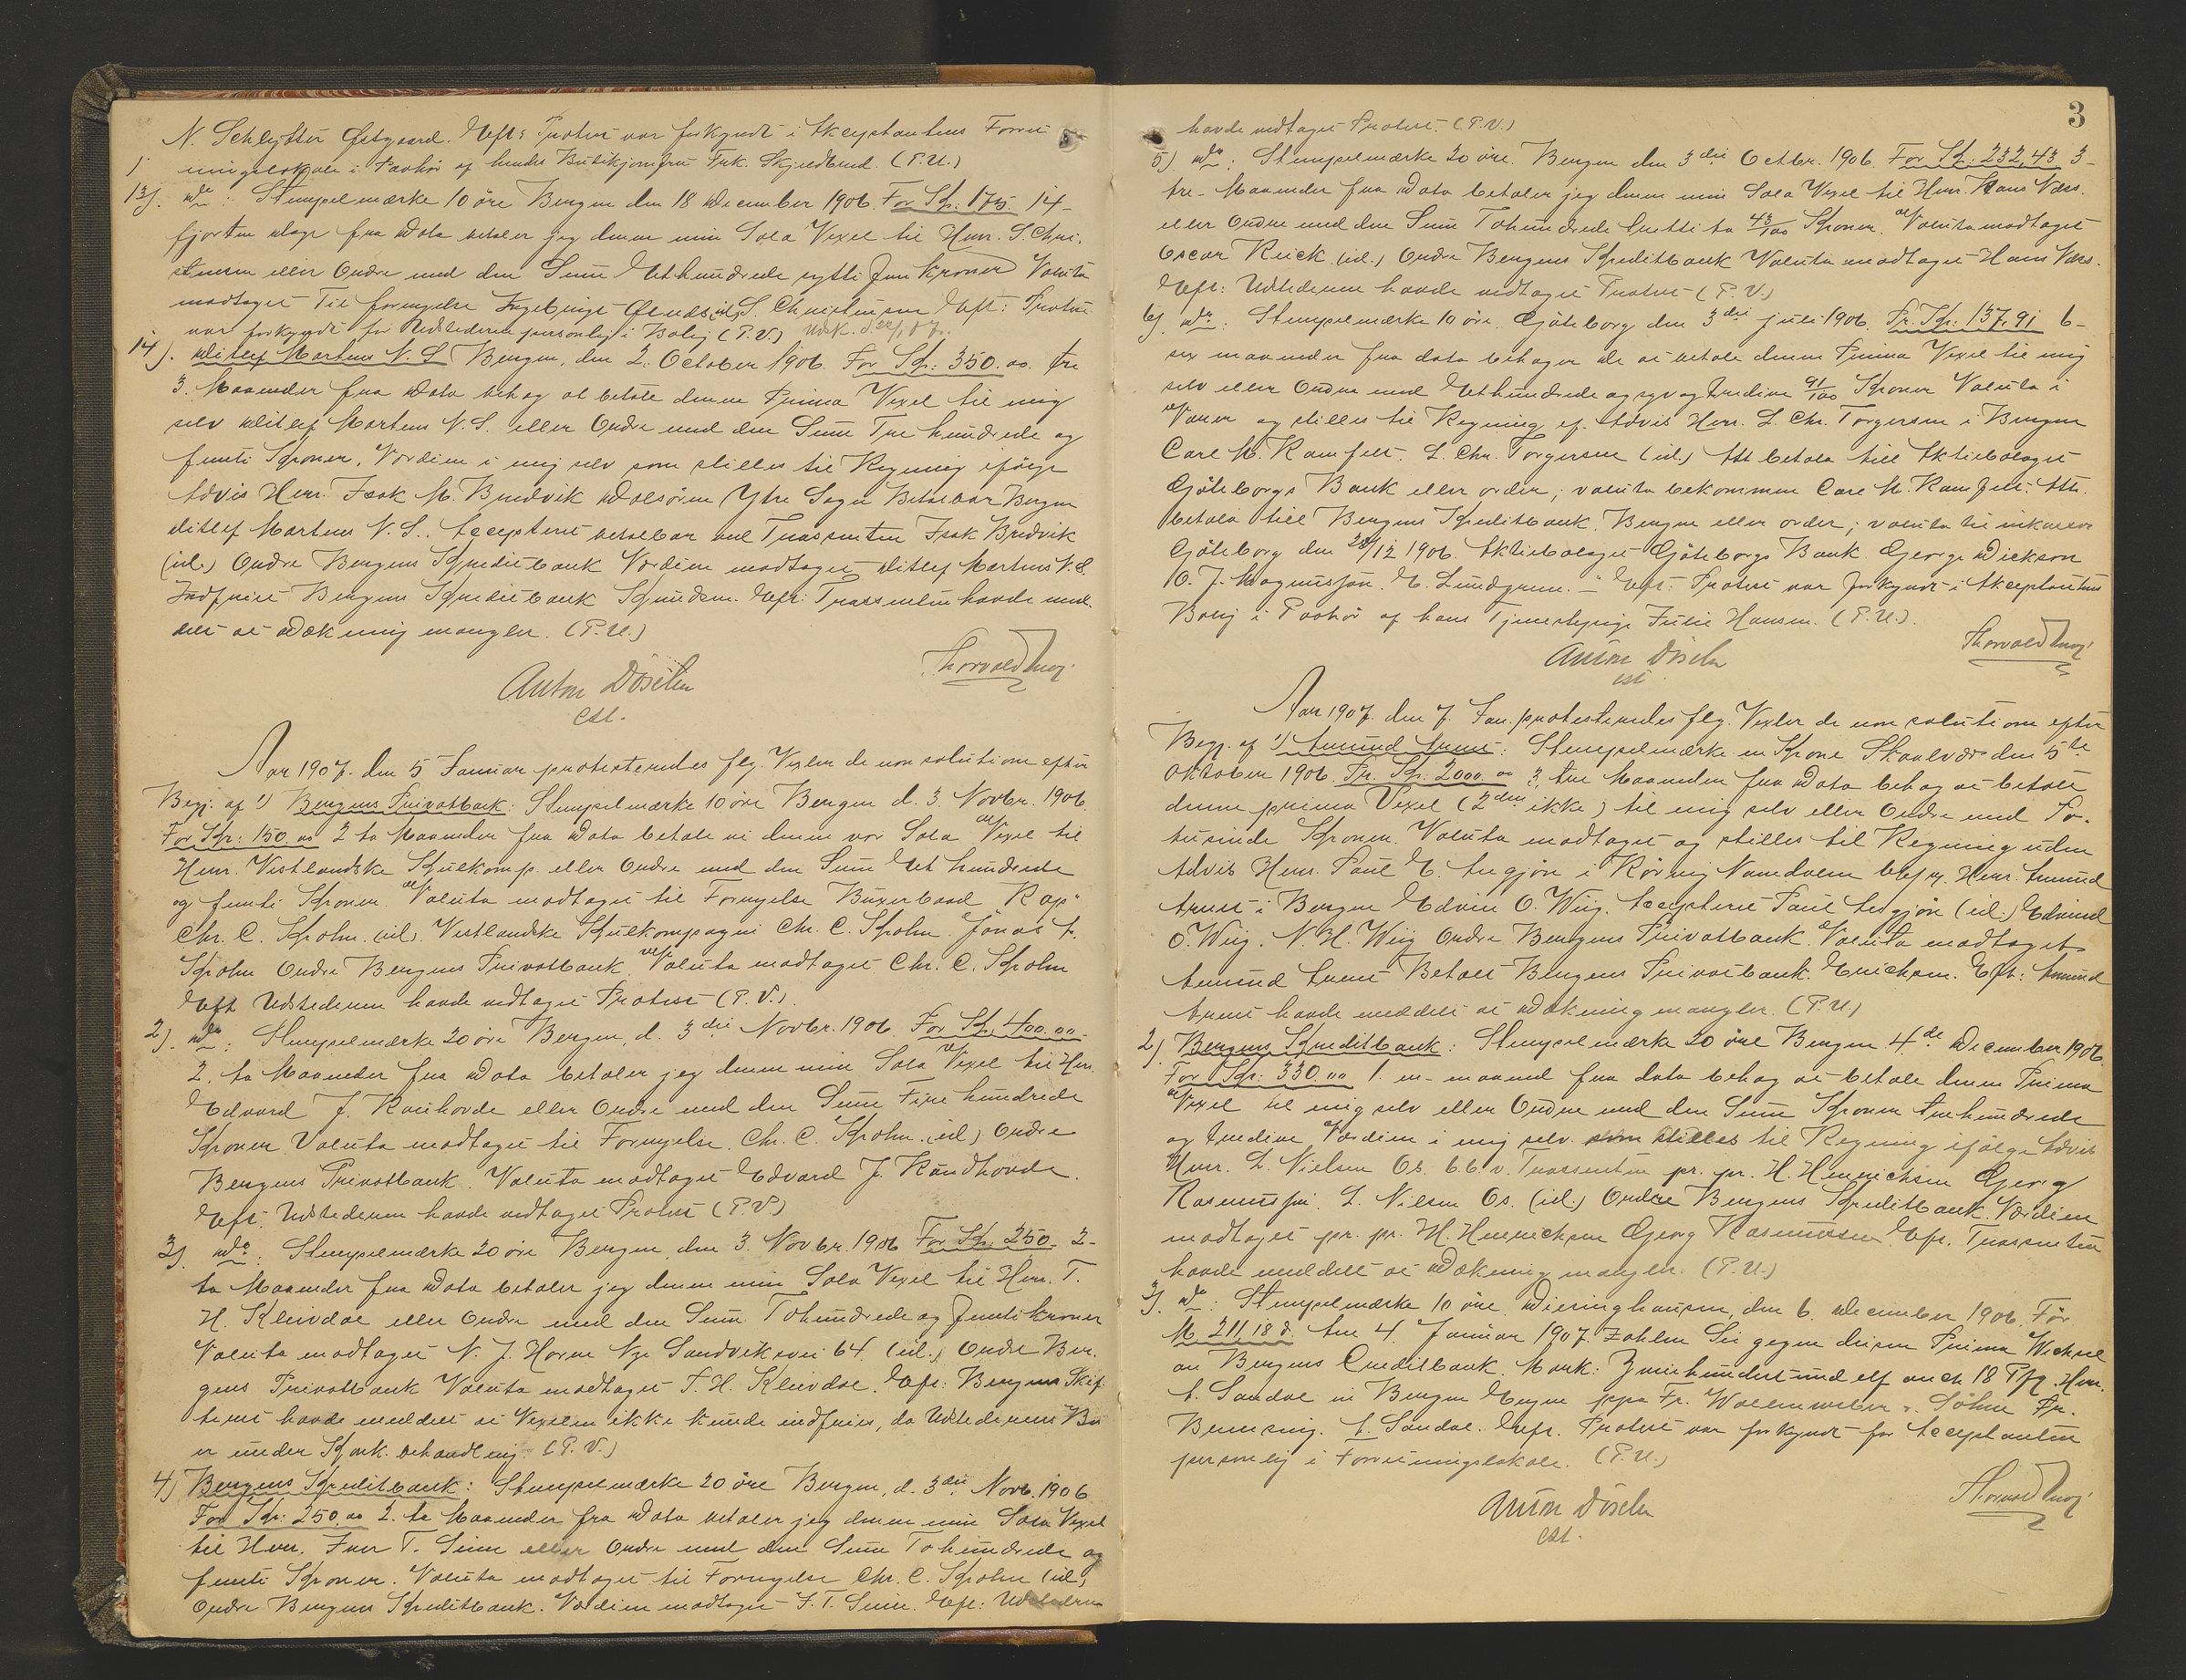 N. Schlytter Østgaard. Eft: Protest var forkyndt i Akceptantens Forret
1 ningslokale i Paahør af hendes Butikjomfru Frk. Skjedbred. (P.U.)
13). do: Stempelmærke 10 öre Bergen den 18 December 1906. For Kr: 175. 14-
fjorten dage fra Dato betaler jeg denne min Sola Vexel til Herr. S. Chri-
stensen eller Ordre med den Sum Ethundrede sytti fem Kroner Valuta
modtaget Til fornyelse Ingebrigt (ul.) S. Christensen Eft: Protest
var forkyndt for Udstederen personlig i Bolig (P.V.)
14). Ditlef Martens N.S. Bergen, den 2. October 1906. For Kr: 350.00. tre
3. Maaneder fra Dato behag at betale denne Prima Vexel til mig
selv Ditlef Martens N.S. eller Ordre med den Sum Tre hundrede og
femti Kroner. Værdien i mig selv som stilles til Regning ifølge
Advis Herr. Isak M. Bredvik Dalsören Ytre Sogn Betalbar Bergen
Ditlef Martens N.S. Accepteret betalbar ved Trassenten Isak Bredvik
(ul.) Ordre Bergens Kreditbank Værdien modtaget Ditlef Martens N.S.
Indfriet Bergens Kreditbank Knudsen. Eft: Trassenten havde med-
delt at Dækning mangler. (P.U.)
Thorvald
Anton Döscher
est.
Aar 1907. den 5 Januar protesteredes flg. Vexler de non solutione efter
Begj. af 1) Bergens Privatbank: Stempelmærke 10 öre Bergen d. 3. Novbr. 1906.
For Kr: 150.00 2 to Maaneder fra Dato betale vi denne vor Sola Vexel til
Herr. Vestlandske Kulkomp. eller Ordre med den Sum Et hundrede
og femti Kroner. Valuta modtaget til Fornyelse Buxerbaad "Rap"
Chr. C. Krohn (ul). Vestlandske Kulkompagni Chr. C. Krohn. Jonas A.
Krohn Ordre Bergens Privatbank. Valuta modtaget Chr. C. Krohn
Eft Udstederen havde vedtaget Protest (P.V.).
2). do: Stempelmærke 20 öre Bergen, d. 3die Novbr. 1906 For Kr. 400.00.
2. to Maaneder fra Dato betaler jeg denne min Sola Vexel til Hr.
Edvard J. Rauhovde eller Ordre med den Sum Fire hundrede
Kroner Valuta modtaget til Fornyelse. Chr. C. Krohn (ul) Ordre
Bergens Privatbank. Valuta modtaget Edvard J. Raudhovde.
Eft. Udstederen havde vedtaget Protest (P.V)
3). do: Stempelmærke 20 öre Bergen, den 3. Novbr. 1906 For Kr. 250. 2-
to Maaneder fra Dato betaler jeg denne min Sola Vexel til Herr. T.
H. Kleivdal eller Ordre med den Sum Tohundrede og femti kroner
Valuta modtaget N. J. Horne Nye Sandviksvei 64. (ul.) Ordre Ber-
gens Privatbank Valuta modtaget T. H. Kleivdal. Eft: Bergens Skif-
teret havde meddelt at Vexelen ikke kunde indfries, da Udstederens Bo
er under Konk. behandling. (P.V.)
4) Bergens Kreditbank: Stempelmærke 20 öre Bergen, d. 3die Novb. 1906
For Kr: 250.00 2. to Maaneder fra Dato betaler jeg denne min Sola Vexel
til Herr. Iver T. Simm eller Ordre med den Sum Tohundrede og
femti Kroner. Valuta modtaget til Fornyelse Chr. C. Krohn (ul)
Ordre Bergens Kreditbank. Værdien modtaget I. T. Simm. Eft: Udstederen
3
havde vedtaget Protest. (P.V.)
5) do: Stempelmærke 20 öre. Bergen den 3die Octbr. 1906. For Kr: 232,43 3-
tre- Maaneder fra Dato betaler jeg denne min Sola Vexel til Herr. Hans Væss.
eller Ordre med den Sum Tohundrede tretti to 43/100 Kroner. Valuta modtaget
Oscar Rieck (ul.) Ordre Bergens Kreditbank Valuta modtaget Hans Væss.
Eft: Udstederen havde vedtaget Protest (P.V.)
6). do: Stempelmærke 10 öre. Göteborg den 3die juli 1906. Fr. Kr: 137.91 6-
sex maaneder fra dato behager De at betale denne Prima Vexel til mig
selv eller Ordre med Ethundrede og syv og tredive 91/100 Kroner Valuta i
Varer og stilles til Regning ef. Advis Herr. L. Chr. Torgersen i Bergen
Carl M. Ramfelt. L. Chr. Torgersen (ul.) Att betala till Aktiebolaget
Göteborgs Bank eller order; valuta bekommen Carl M. Ramfelt. Att
betala till Bergens Kreditbank. Bergen eller order; valuta til inkasso
Göteborg den 28/12 1906. Aktiebolaget Göteborgs Bank. George Dickson
O. J. Magnusson. E. Lundgren. - Eft: Protest var forkyndt i Akceptantens
Bolig i Paahør af hans Tjenestepige Julie Hansen. (P.U.).
Thorvald
Anton Döscher
est
Aar 1907. den 7. Jan. protesteredes flg. Vexler de non solutione efter
Begj. af 1) Amund Aunet: Stempelmærke en Krone Skaalvær den 5te
Oktober 1906. Fr. Kr: 2000.00 3, tre Maaneder fra Dato behag at betale
denne prima Vexel (2den ikke) til mig selv eller Ordre med To-
tusinde Kroner. Valuta modtaget og stilles til Regning uden
Advis Herr. Paul E. Angjör i Rörvig Namdalen Bet. pr. Herr. Amund
Aunet i Bergen Edvin O. Wiig. Accepteret Paul Angjör (ul.) Edvind
O. Wiig. N. H. Wiig Ordre Bergens Privatbank. Valuta modtaget
Amund Aunet Betalt Bergens Privatbank. Erichsen. Eft: Amund
Aunet havde meddelt at Dækning mangler. (P.U.)
2). Bergens Kreditbank: Stempelmærke 20 öre Bergen 4.de December 1906.
For Kr: 330.00 1. en- maaned fra dato behag at betale denne Prima
Vexel til mig selv eller Ordre med den Sum Kroner trehundrede
og tredive Værdien i mig selv som stilles til Regning ifølge Advis
Herr. L. Nielsen Os. b.b.v. Trassenten pr. pr. H. Henrichsen Georg
Rasmussen. L. Nilsen Os. (ul.) Ordre Bergens Kreditbank. Værdien
modtaget pr. pr. H. Henrichsen Georg Rasmussen. Eft. Trassenten
havde meddelt at Dækning mangler. (P.U.)
3). do: Stempelmærke 10 öre. Dieringhausen, den 6. December 1906. Für
M 211,18 d. Am 4. Januar 1907. zahlen Sie gegen diesen Prima Wechsel
an Bergens Creditbank. Mark: Zweihundertundelf auch 18 Pfg. Herr.
A. Sandal in Bergen ppa Fr. Söhne Fr.
A. Sandal. Eft. Protest var forkyndt for Acceptanten
personlig i Forretningslokale. (P.U.)
Thorvald
Anton Döscher
est.